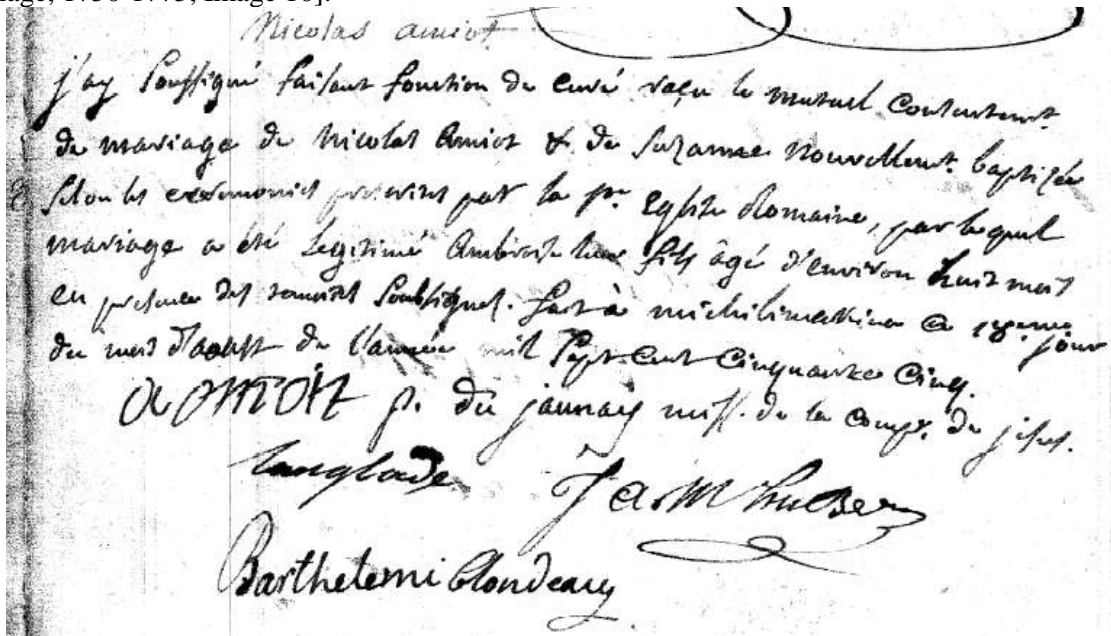 Nicolas amiot
j'ay soussigné faisant fonction de curé reçu le mutuel consentement
de mariage de nicolas amiot & de suzanne nouvellemt. baptizée
selon les ceremonies prescrites par la ste. Eglise Romaine, par lequel
mariage a été legitimé ambroise leur fils âgé d'environ huit mois
en presence des temoins soussignes. fait à michilimakina ce jour
du mois d'aoust de l'année mil sept cent cinquante cinq.
p. du jaunay miss. de la comp. de jesus.
Langlade
Barthelemi blondeau